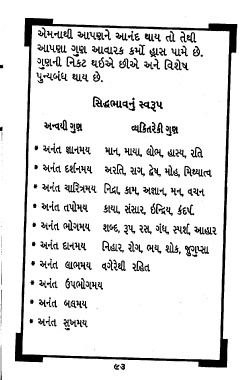 એમનાથી આપણને આનંદ થાય તો તેથી
આપણા ગુણ આવારક કર્મો હ્રાસ પામે છે.
ગુણની નિકટ થઇએ છીએ અને વિશેષ
પુન્યબંધ થાય છે.
સિદ્ધભાવનું સ્વરૂપ
અન્વયી ગુણ વ્યકતિરેકી ગુણ
• અનંત જ્ઞાનમય માન, માયા, લોભ, હાસ્ય, રતિ
• અનંત દર્શનમય અરતિ, રાગ, દ્વેષ, મોહ, મિથ્યાત્વ
• અનંત ચારિત્રમય નિદ્રા, કામ, અજ્ઞાન, મન, વચન
• અનંત તપોમય કાયા, સંસાર, ઇન્દ્રિય, કંદર્પ
• અનંત ભોગમય શબ્દ, રૂપ, રસ, ગંધ, સ્પર્શ, આહાર
• અનંત દાનમય નિહાર, રોગ, ભય, શોક, જુગુપ્સા
• અનંત લાભમય વગેરેથી રહિત
• અનંત ઉપભોગમય
• અનંત બલમય
• અનંત સુખમય
૯૩